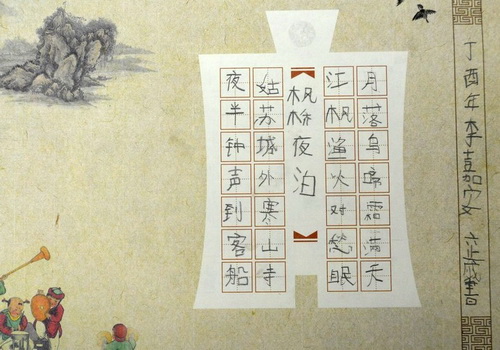 月落乌啼霜满天
江枫渔火对愁眠
枫桥夜泊
姑苏城外寒山寺
夜半钟声到客船
丁酉年李嘉 書